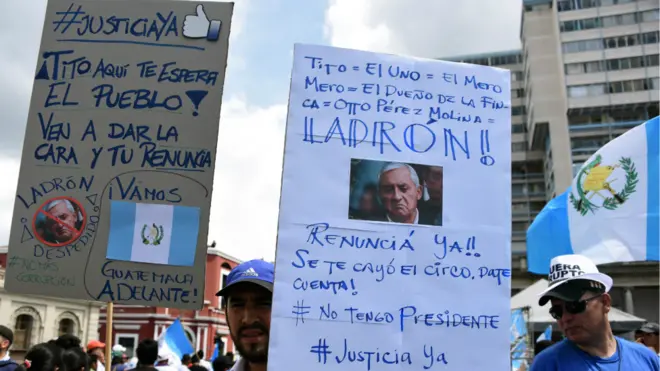 #JUSTICIAYA
¡TITO AQUÍ TE ESPERA
EL PUEBLO!
VEN A DAR LA
CARA Y TU RENUNCIA
LADRÓN
DESPEDIDO
¡VAMOS
GUATEMALA
ADELANTE!
TITO = EL UNO = EL MERO
MERO = EL DUEÑO DE LA FIN-
CA = OTTO PÉREZ MOLINA =
LADRÓN!!
RENUNCIÁ YA!!
SE TE CAYÓ EL CIRCO, DATE
CUENTA!
# NO TENGO PRESIDENTE
# JUSTICIA YA
FUERA